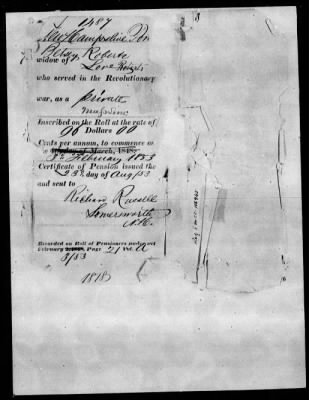 1487
New Hampshire
Betsy Roberts
widow of Love Roberts
who served in the Revolutionary
war, as a private
musician
Inscribed on the Roll at the rate of
96 Dollars 00
Cents per annum, to commence on
March, 1848
3d February 1853
Certificate of Pension issued the
23d day of Aug /53
and sent to
Richard Russell
Somersworth
N.H.
Recorded on Roll of Pensioners under act
February Page 21 Vol. A
3/53
1818